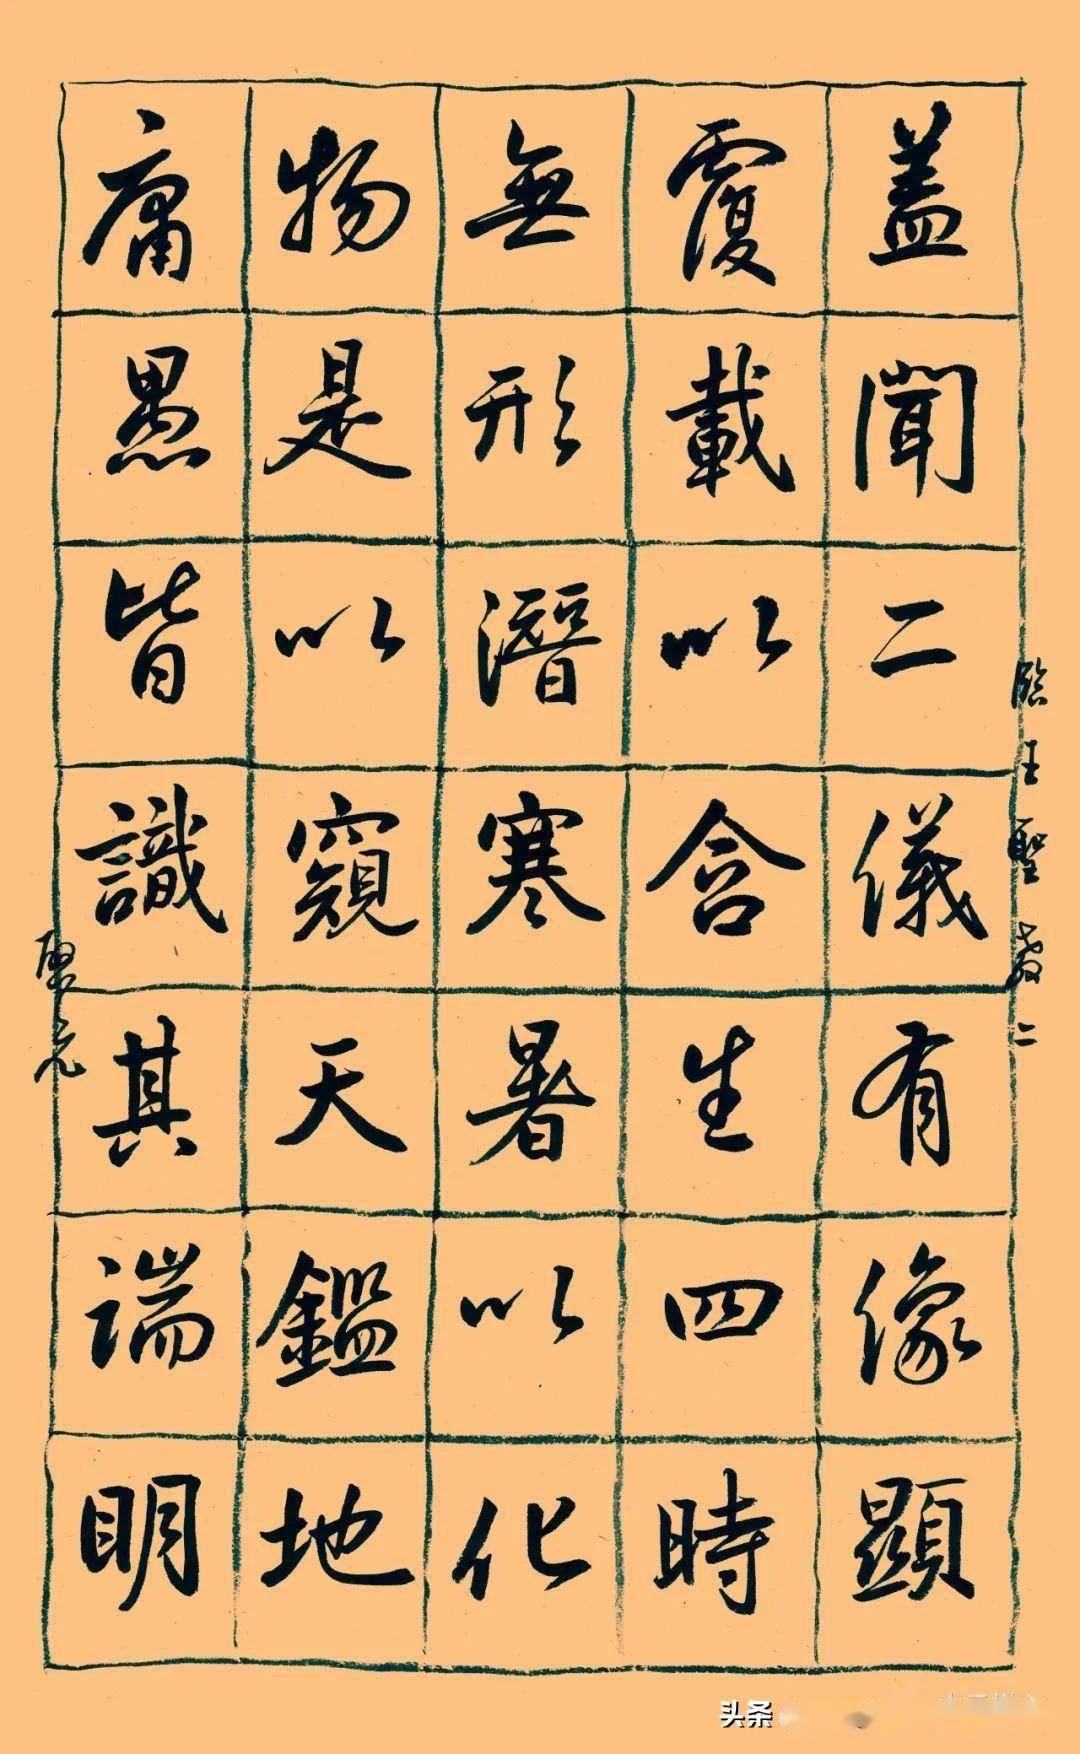 臨王聖教二
蓋聞二儀有像顯
覆載以含生四時
無形潛寒暑以化
物是以窺天鑑地
庸愚皆識其端明
頭条